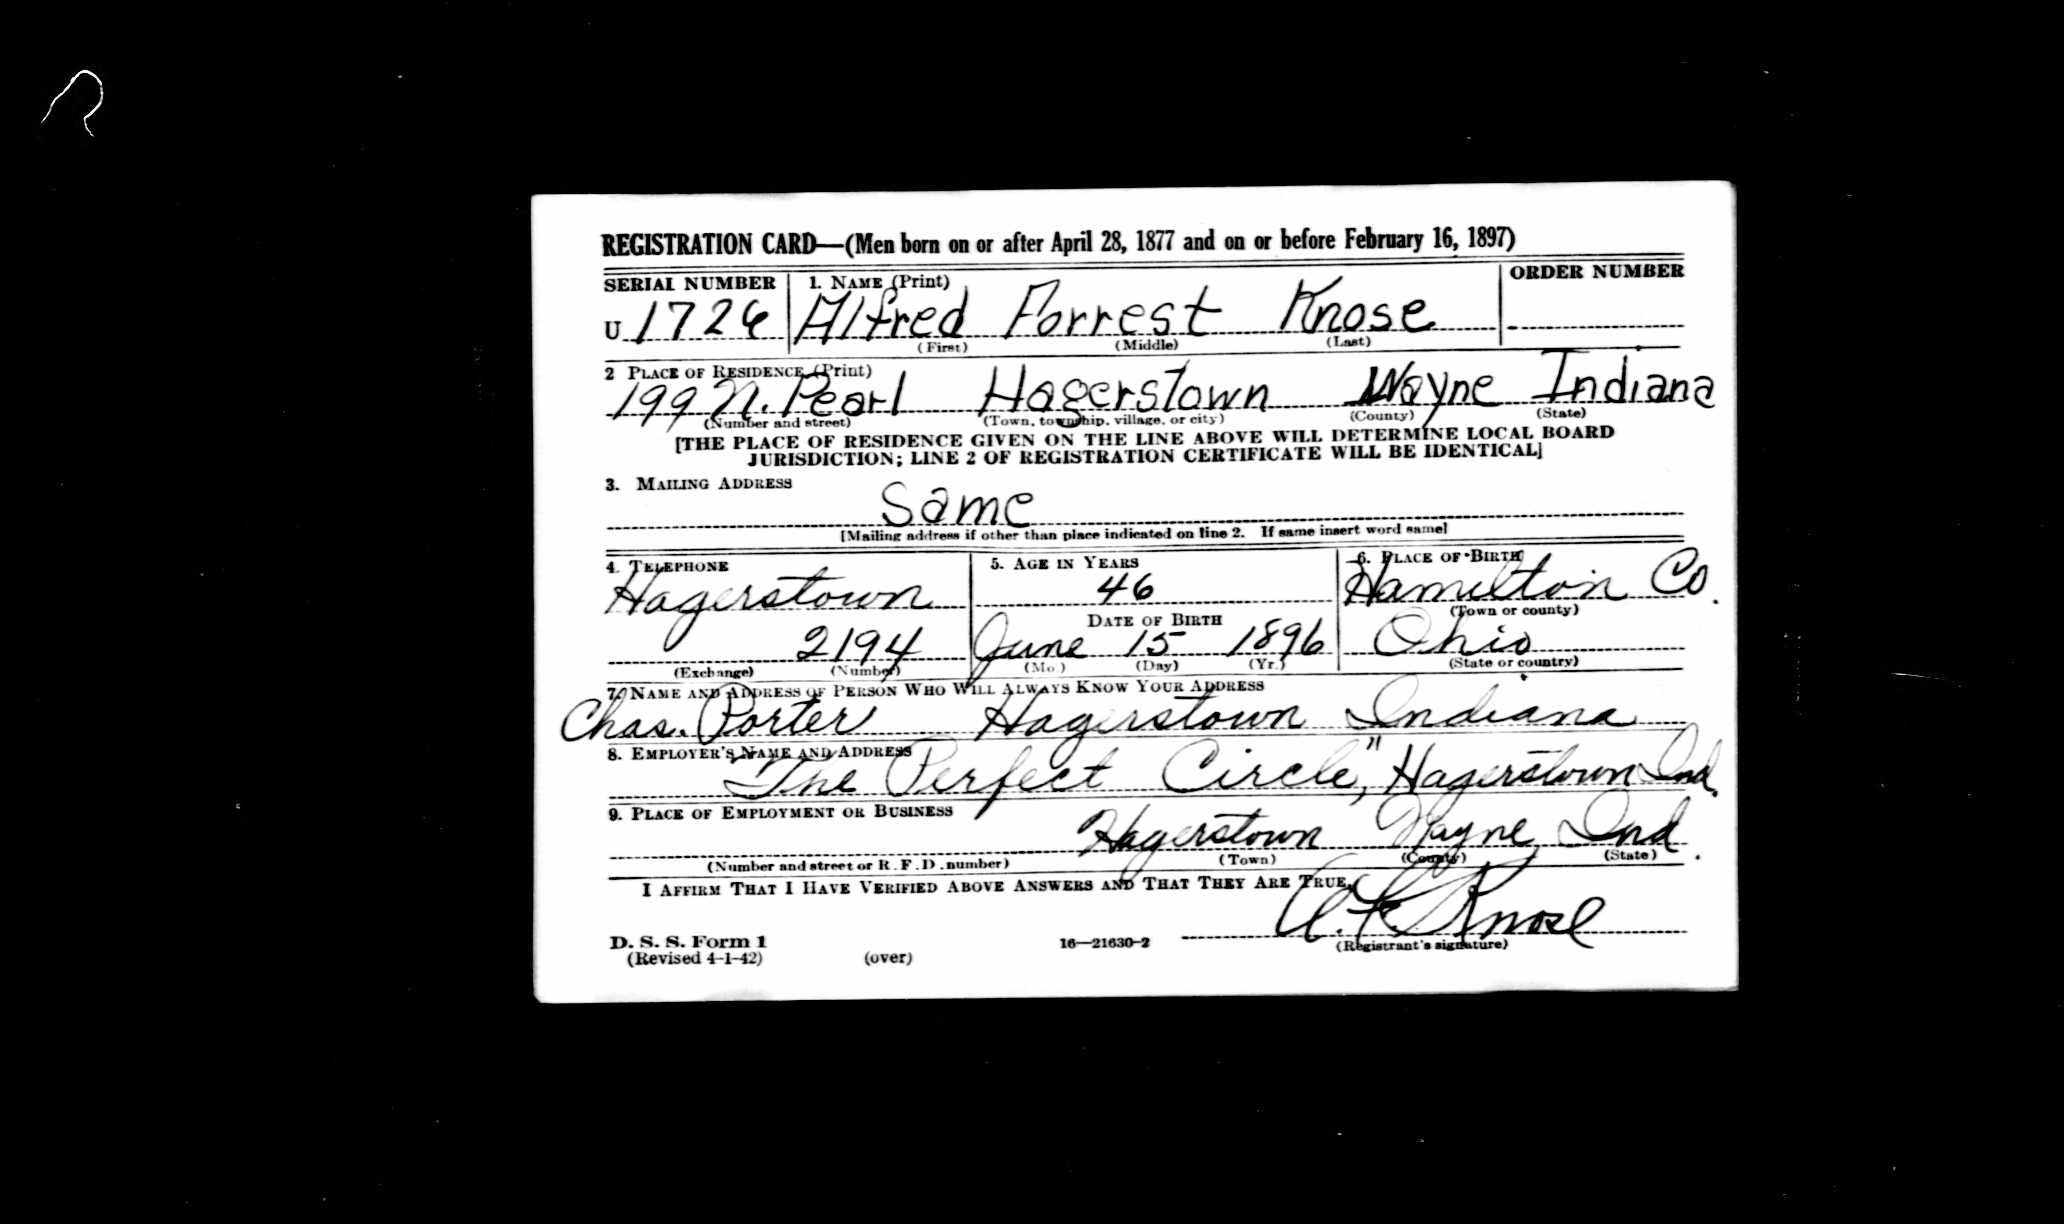 REGISTRATION CARD—(Men born on or after April 28, 1877 and on or before February 16, 1897)
SERIAL NUMBER 1. NAME (Print) ORDER NUMBER
U 1726 Alfred Forrest Knose
(First) (Middle) (Last)
2 PLACE OF RESIDENCE (Print)
199 N. Pearl Hagerstown Wayne Indiana
(Number and street) (Town, township, village, or city) (County) (State)
[THE PLACE OF RESIDENCE GIVEN ON THE LINE ABOVE WILL DETERMINE LOCAL BOARD
JURISDICTION; LINE 2 OF REGISTRATION CERTIFICATE WILL BE IDENTICAL]
3. MAILING ADDRESS
Same
[Mailing address if other than place indicated on line 2. If same insert word same]
4. TELEPHONE 5. AGE IN YEARS 6. PLACE OF BIRTH
Hagerstown 46 Hamilton Co.
DATE OF BIRTH (Town or county)
2194 June 15 1896 Ohio
(Exchange) (Number) (Mo.) (Day) (Yr.) (State or country)
7. NAME AND ADDRESS OF PERSON WHO WILL ALWAYS KNOW YOUR ADDRESS
Chas. Porter Hagerstown Indiana
8. EMPLOYER'S NAME AND ADDRESS
"The Perfect Circle", Hagerstown Ind.
9. PLACE OF EMPLOYMENT OR BUSINESS
Hagerstown Wayne Ind.
(Number and street or R. F. D. number) (Town) (County) (State)
I AFFIRM THAT I HAVE VERIFIED ABOVE ANSWERS AND THAT THEY ARE TRUE.
A. F. Knose
D. S. S. Form 1 16—21630-2 (Registrant's signature)
(Revised 4-1-42) (over)